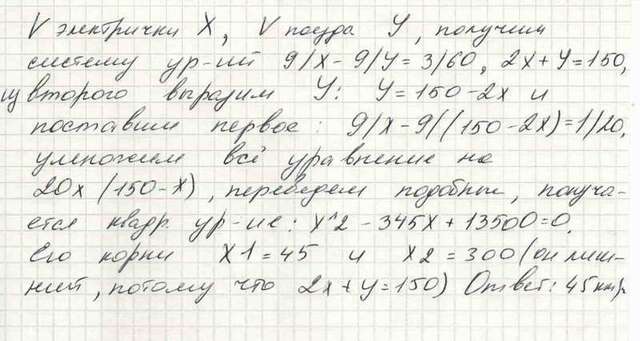 V электрички X, V поезда У, получим
систему ур-ий 9/X - 9/У = 3/60, 2X + У = 150,
из второго выразим У: У = 150 - 2X и
поставим первое: 9/X - 9/((150 - 2X) = 1/20,
умножаем всё уравнение на
20X (150 - X), переведем подобные, получа-
ется квадр. ур-ие: X^2 - 345X + 13500 = 0.
Его корни X1 = 45 и X2 = 300 (он лиш-
ний, потому что 2X + У = 150) Ответ: 45 км/ч